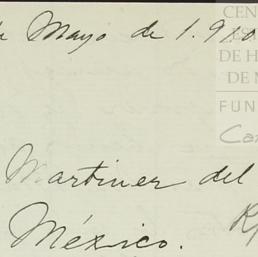 de Mayo de 1.910
CEN
DE H
DE M
FUN
Car
Martinez del
México.